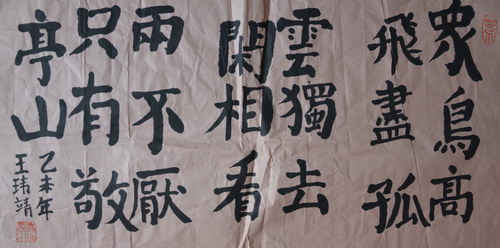 眾鳥高
飛盡孤
雲獨去
閑相看
兩不厭
只有敬
亭山
乙未年
王玮靖